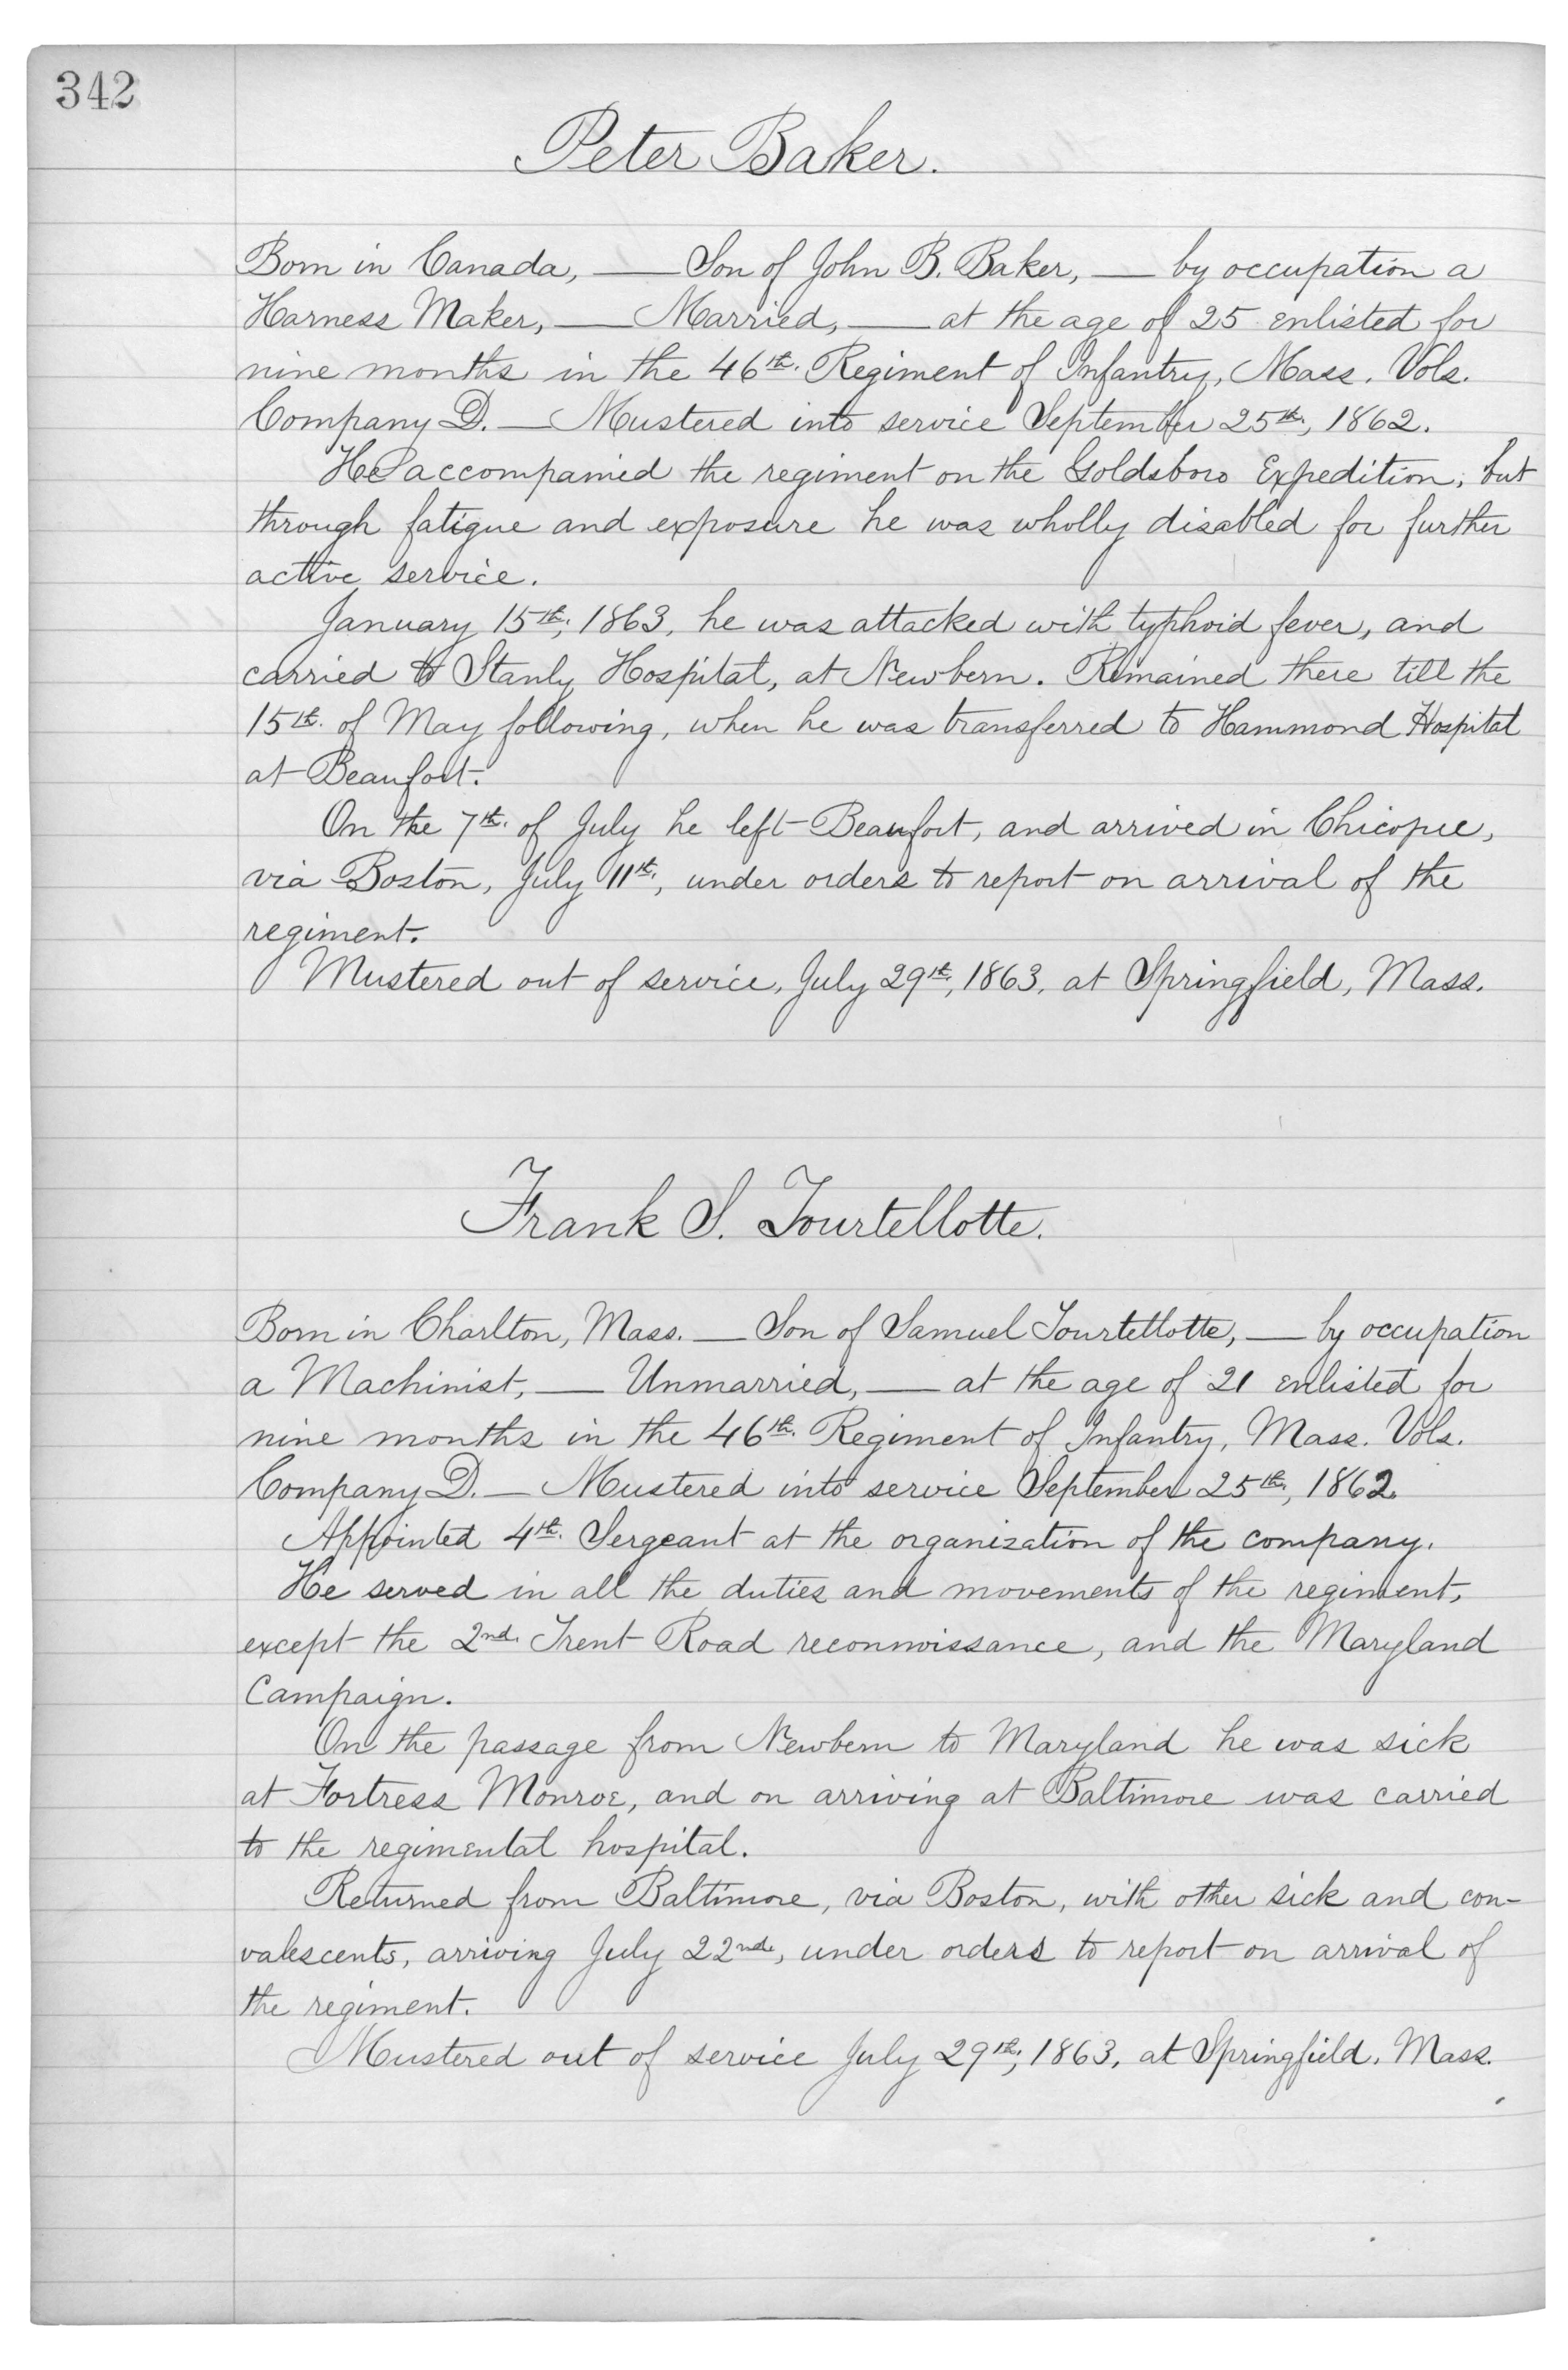 342
Peter Baker.
Born in Canada, — Son of John B. Baker, — by occupation a
Harness Maker, — Married, — at the age of 25 enlisted for
nine months in the 46th. Regiment of Infantry, Mass. Vols.
Company D. — Mustered into service September 25th, 1862.
He accompanied the regiment on the Goldsboro Expedition; but
through fatigue and exposure he was wholly disabled for further
active service.
January 15th, 1863, he was attacked with typhoid fever, and
carried to Stanly Hospital, at Newbern. Remained there till the
15th. of May following, when he was transferred to Hammond Hospital
at Beaufort.
On the 7th. of July he left Beaufort, and arrived in Chicopee,
via Boston, July 11th, under orders to report on arrival of the
regiment.
Mustered out of service, July 29th, 1863, at Springfield, Mass.
Frank S. Tourtellotte.
Born in Charlton, Mass. — Son of Samuel Tourtellotte, — by occupation
a Machinist, — Unmarried, — at the age of 21 enlisted for
nine months in the 46th. Regiment of Infantry, Mass. Vols.
Company D. — Mustered into service September 25th, 1862.
Appointed 4th. Sergeant at the organization of the company.
He served in all the duties and movements of the regiment,
except the 2nd. Trent Road reconnoissance, and the Maryland
Campaign.
On the passage from Newbern to Maryland he was sick
at Fortress Monroe, and on arriving at Baltimore was carried
to the regimental hospital.
Returned from Baltimore, via Boston, with other sick and con-
valescents, arriving July 22nd, under orders to report on arrival of
the regiment.
Mustered out of service July 29th, 1863, at Springfield, Mass.